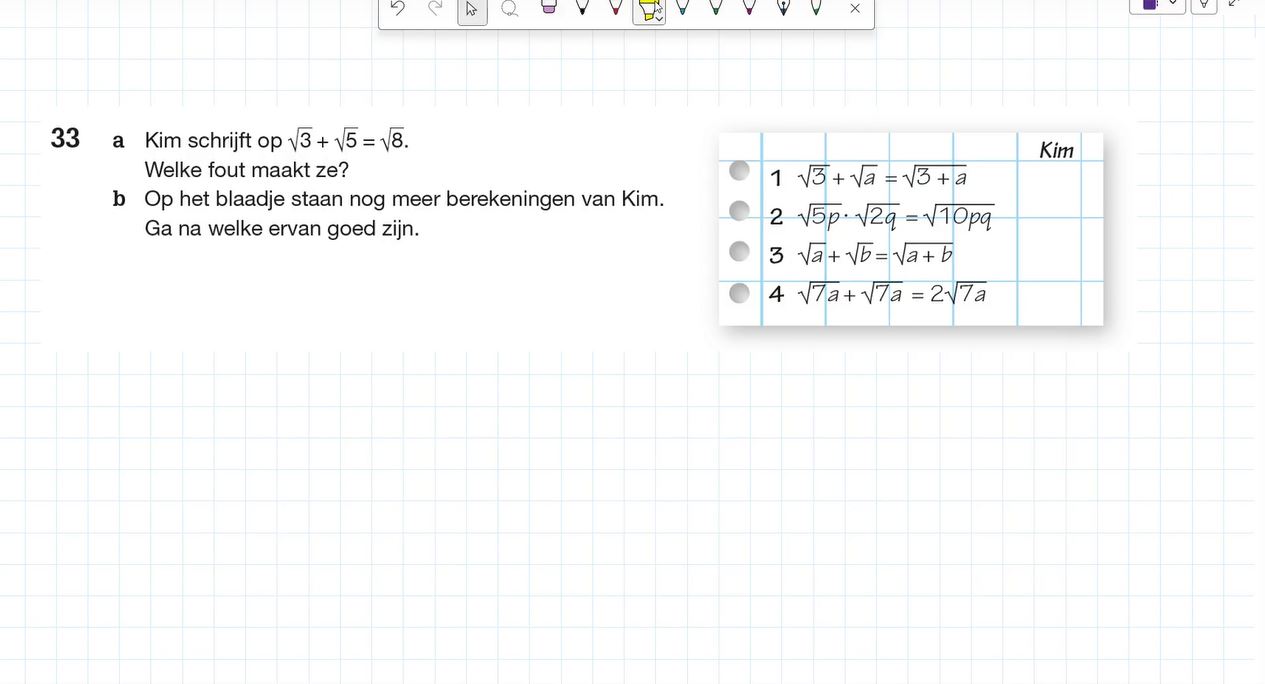 33 a Kim schrijft op √3 + √5 = √8.
Welke fout maakt ze?
b Op het blaadje staan nog meer berekeningen van Kim.
Ga na welke ervan goed zijn.
Kim
1 √3 + √a = √(3 + a)
2 √5p · √2q = √10pq
3 √a + √b = √(a + b)
4 √7a + √7a = 2√7a